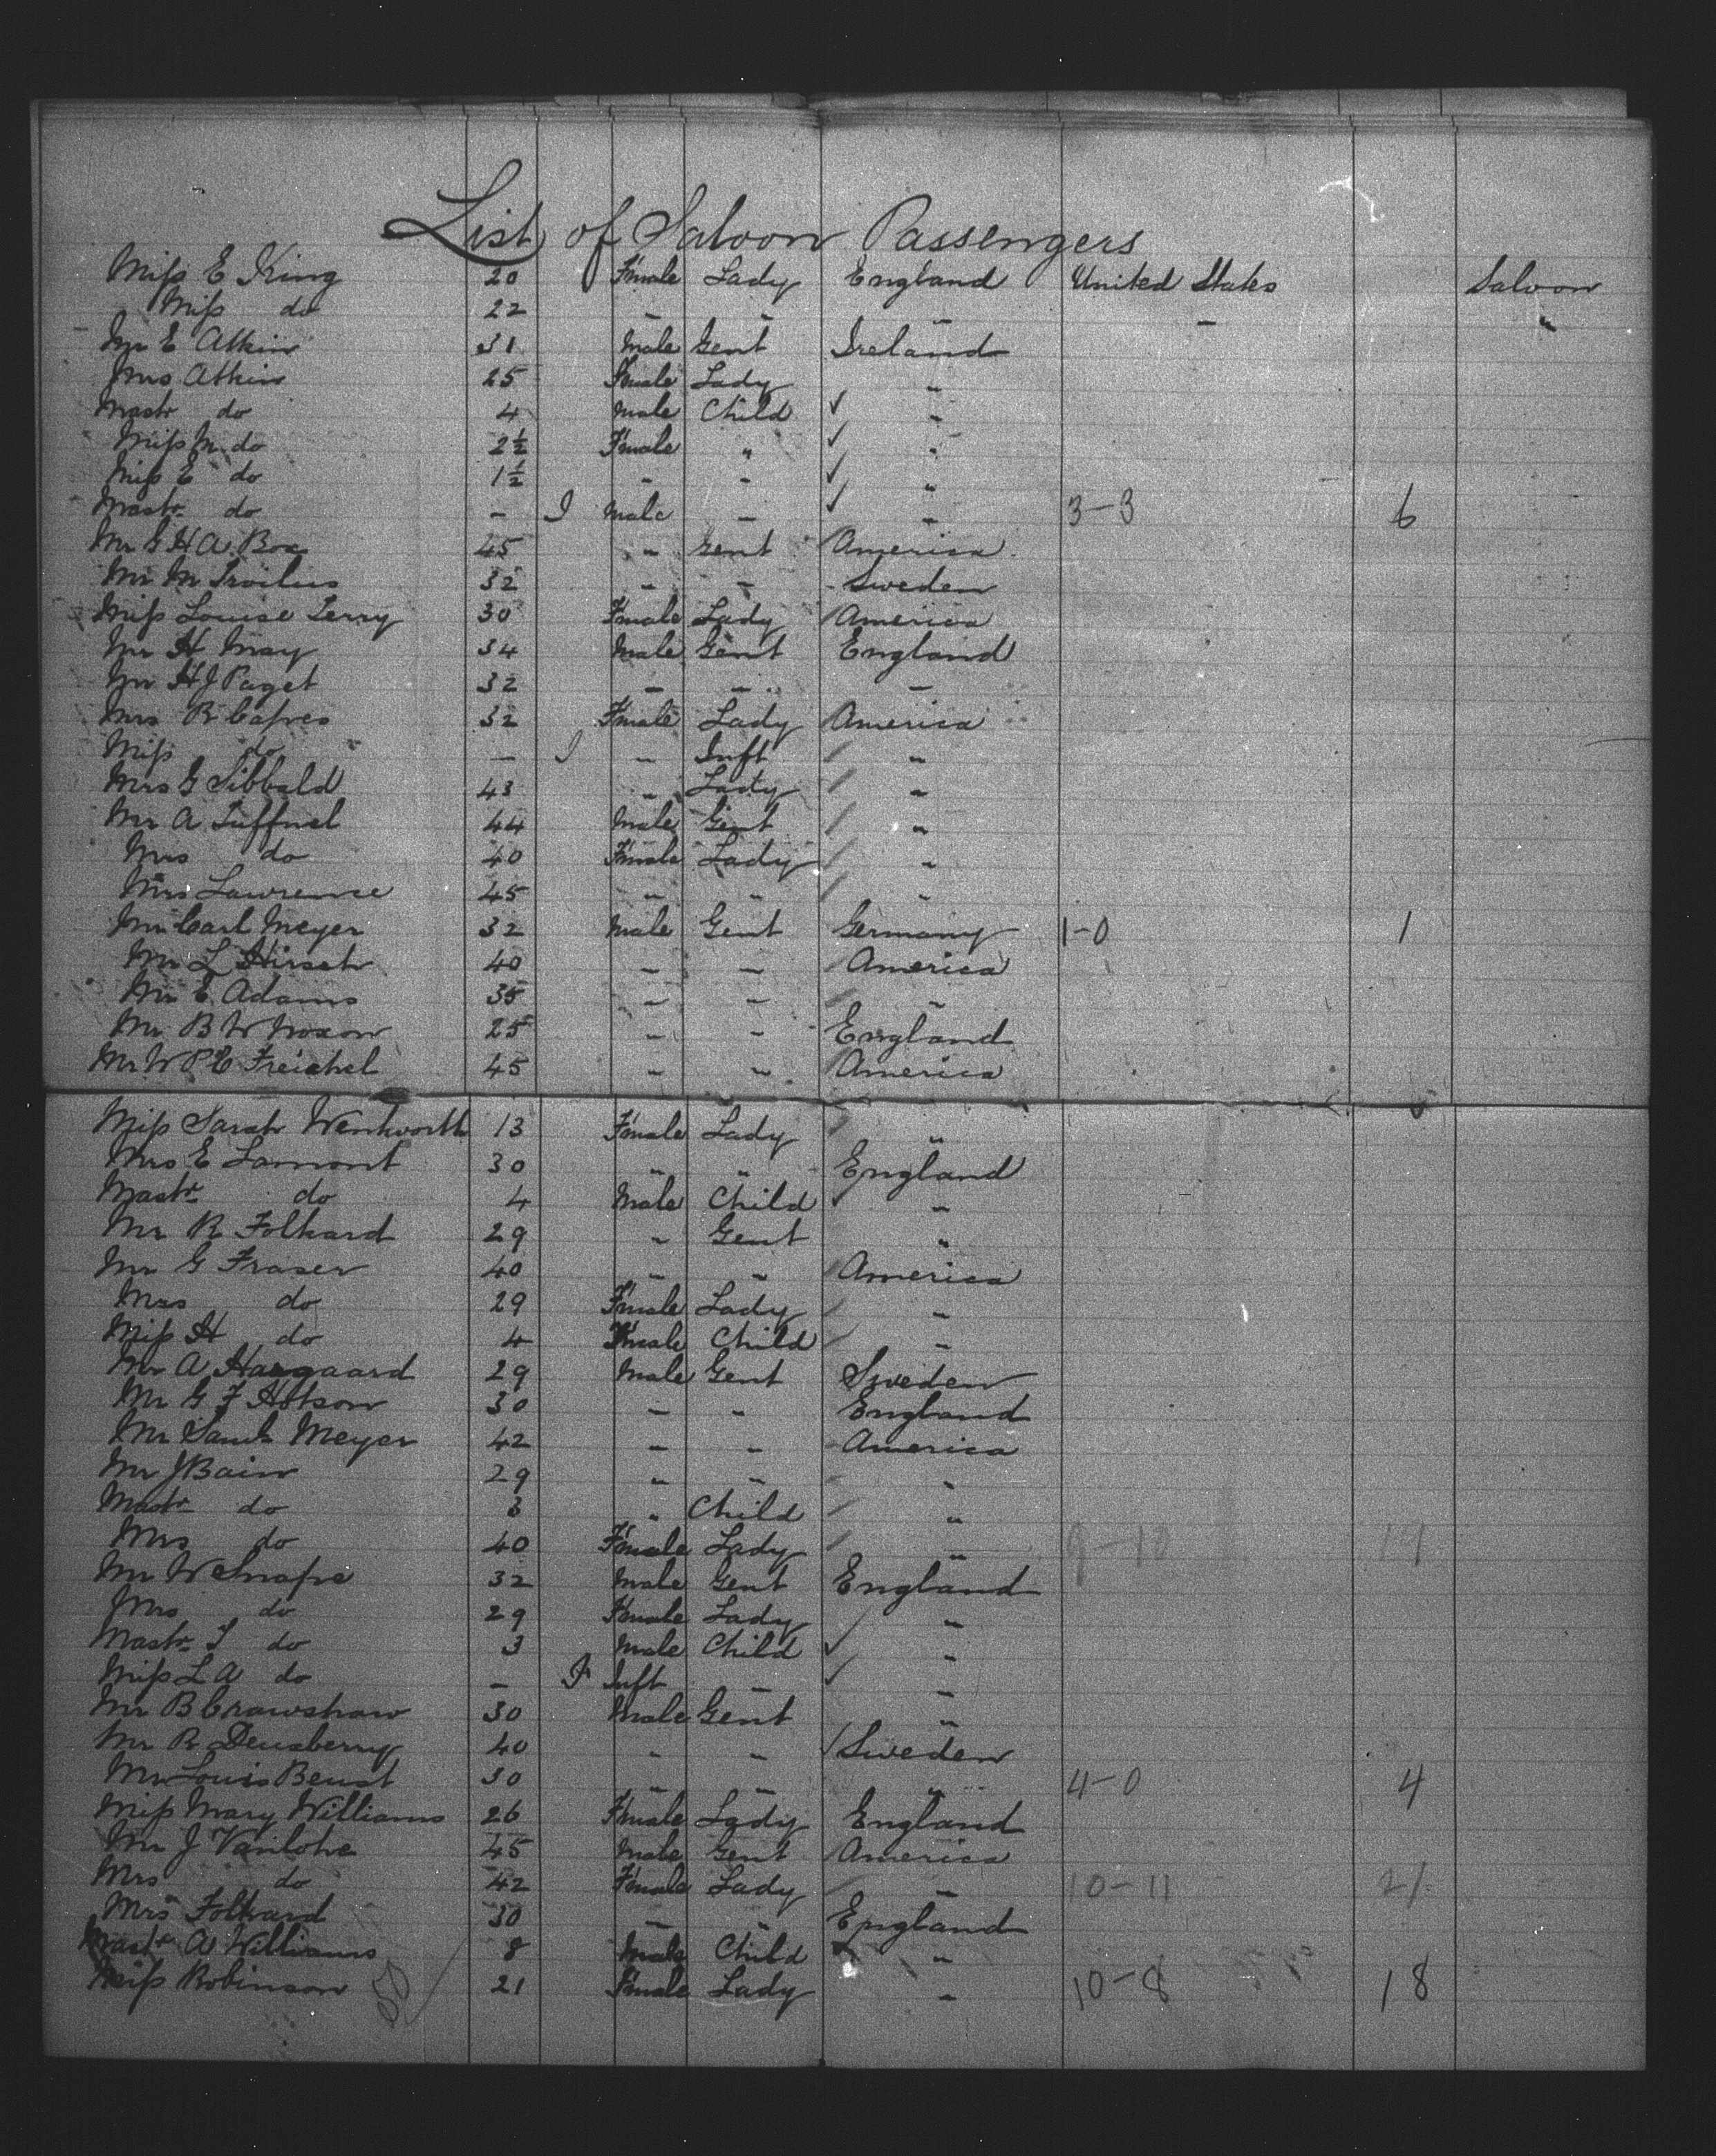 List of Saloon Passengers
Miss E King 20 Female Lady England United States Saloon
Miss do 22 " " " " "
Mr E Atkin 31 Male Gent Ireland
Mrs Atkin 25 Female Lady "
Mastr do 4 Male Child ✓ "
Miss M do 2½ Female " ✓ "
Miss E do 1½ " " ✓ "
Mastr do - I Male " ✓ " 3-3 6
Mr G H A Box 45 " Gent America
Mr M Troilus 32 " " Sweden
Miss Louise Terry 30 Female Lady America
Mr H May 34 Male Gent England
Mr H J Paget 32 " " "
Mrs R 32 Female Lady America
Miss do - I " Inft "
Mrs G Sibbald 43 " Lady "
Mr A Tuffnel 44 Male Gent "
Mrs do 40 Female Lady "
Mrs Lawrence 45 " " "
Mr Carl Meyer 32 Male Gent Germany 1-0 1
Mr L Hirsch 40 " " America
Mr E Adams 35 " " "
Mr B W Noxon 25 " " England
Mr W P E Freichel 45 " " America
Miss Sarah Wentworth 13 Female Lady "
Mrs E Lamont 30 " " England
Mastr do 4 Male Child ✓ "
Mr R Folkard 29 " Gent "
Mr G Fraser 40 " " America
Mrs do 29 Female Lady "
Miss H do 4 Female Child "
Mr A Haagaard 29 Male Gent Sweden
Mr G F Hotson 30 " " England
Mr Saml Meyer 42 " " America
Mr J Bain 29 " " "
Mastr do 3 " Child "
Mrs do 40 Female Lady " 9-10
Mr W 32 Male Gent England
Mrs do 29 Female Lady "
Mastr T do 3 Male Child ✓ "
Miss L A do - I Inft " ✓ "
Mr B Crawshaw 30 Male Gent "
Mr R Deusberry 40 " " Sweden
Mr Louis Beust 30 " " " 4-0 4
Miss Mary Williams 26 Female Lady England
Mr J Vanlohe 45 Male Gent America
Mrs do 42 Female Lady " 10-11 21
Mrs Folkard 30 " " England
Mastr A Williams 8 Male Child "
Miss Robinson 50 21 Female Lady " 10-8 18